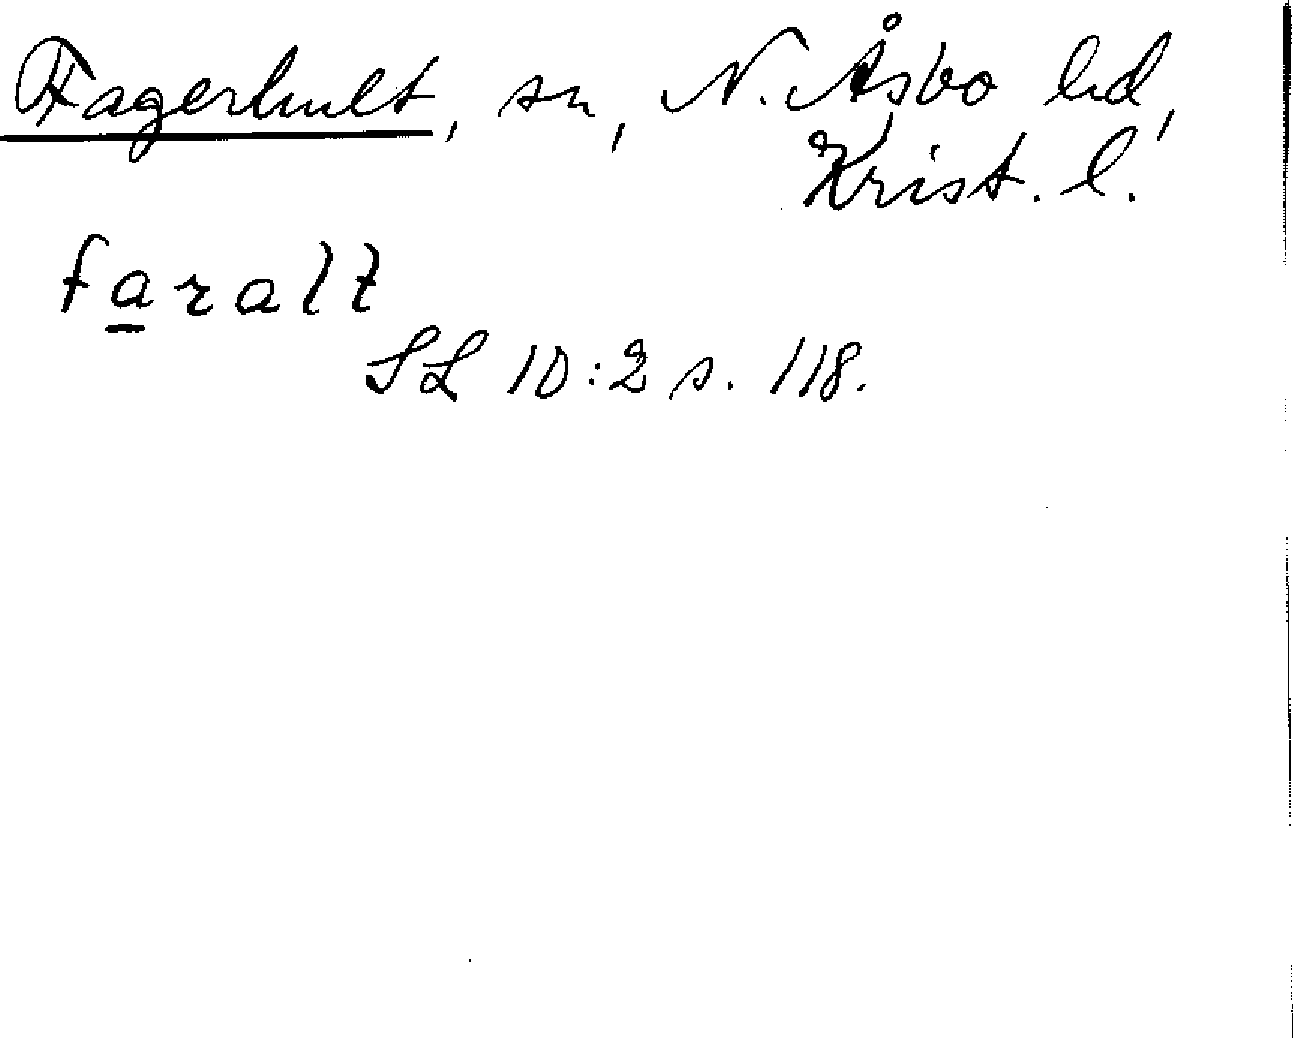 Fagerhult, sn, N. Åsbo hd,
Krist. l.
faralt
SL 10:2 s. 118.